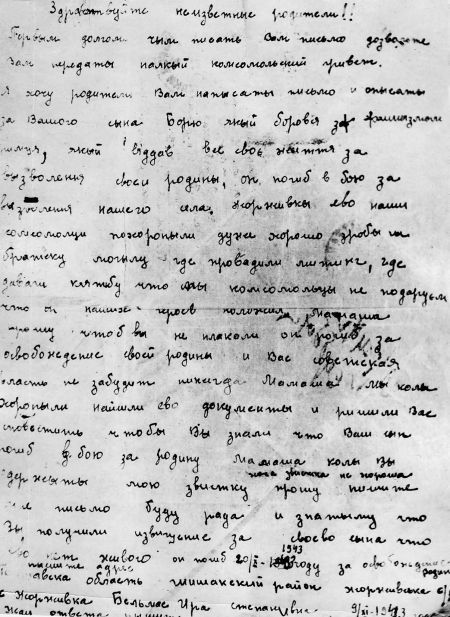 Здравствуйте неизвестные родители!!
Первым долгом чым писать Вам письмо дозвольте
Вам передаты палкый комсомольский привет.
Я хочу родители Вам написаты письмо и описаты
за Вашого сына Борю який боровся за фашизмом
який віддав все своє життя за
вызволения своеи родины, он погиб в бою за
вызволения нашего села. Жорнивкы ево наши
комсомолци похоронылы дуже хорошо зробылы
братску могылу где проводили митинг, где
давалы клятву что мы комсомольцы не подаруем
что он нашых кров Мамаша
прошу чтоб вы не плакали он погиб за
освобождение своей родины и Вас советская
власть не забудит никогда Мамаша мы колы
хоронылы найшли ево документы и ришили Вас
сповистить чтобы Вы знали что Ваш сын
погиб в бою за родину Мамаша колы Вы
хоча звистка не хороша
держыты мою звистку прошу пишите
мне письмо буду рада и знатыму что
Вы получили извищение за своево сына что
ево нет живого он погиб 20/IX-1943 году за освобождение родины
пишите адрес
область шишакский район жорнивська с/р
с Жорнивка Бельмас Ира степановна 9/XI-1943
Жди ответа